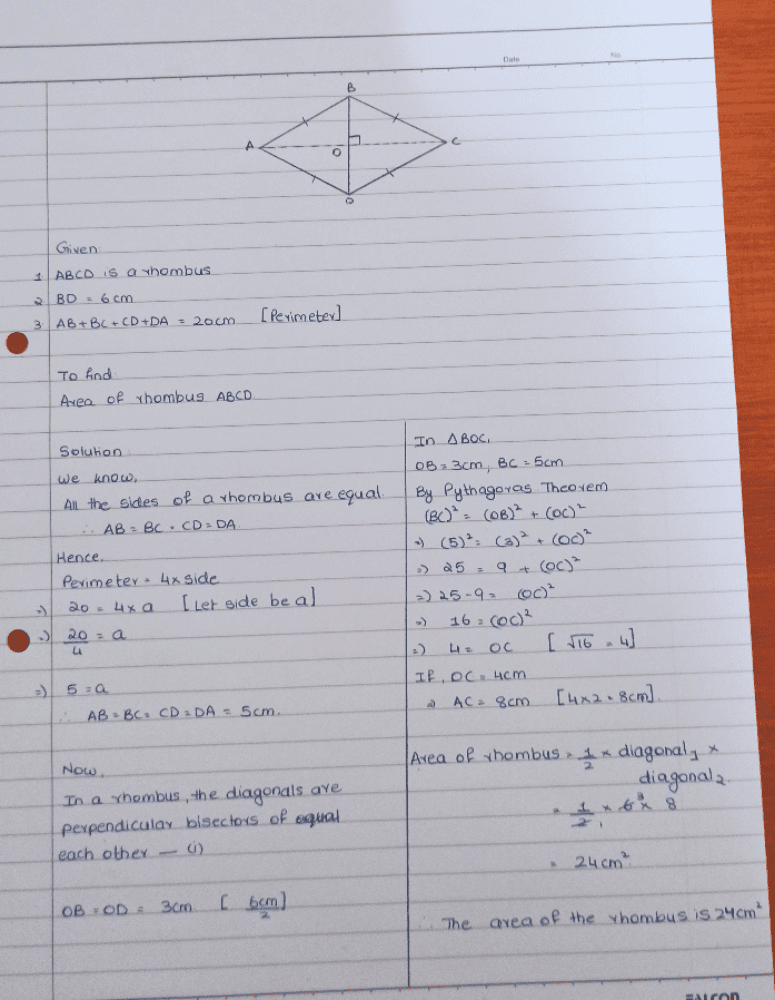 Date
No.
B
A
C
O
D
Given:
1 ABCD is a rhombus
2 BD = 6cm
3 AB+BC+CD+DA = 20cm [Perimeter]
To find:
Area of rhombus ABCD
Solution
We know,
All the sides of a rhombus are equal.
∴ AB = BC = CD = DA
Hence,
Perimeter = 4 x side
=) 20 = 4 x a [Let side be a]
=) 20/4 = a
=) 5 = a
∴ AB = BC = CD = DA = 5cm.
Now,
In a rhombus, the diagonals are
perpendicular bisectors of equal
each other — (i)
OB = OD = 3cm [6cm/2]
In △BOC,
OB = 3cm, BC = 5cm
By Pythagoras Theorem
(BC)² = (OB)² + (OC)²
=) (5)² = (3)² + (OC)²
=) 25 = 9 + (OC)²
=) 25-9 = (OC)²
=) 16 = (OC)²
=) 4 = OC [√16 = 4]
If, OC = 4cm
⇒ AC = 8cm [4x2 = 8cm].
Area of rhombus = 1/2 x diagonal₁ x
diagonal₂.
= 1/2 1 x 6 3 x 8
= 24cm²
∴ The area of the rhombus is 24cm²
FALCON